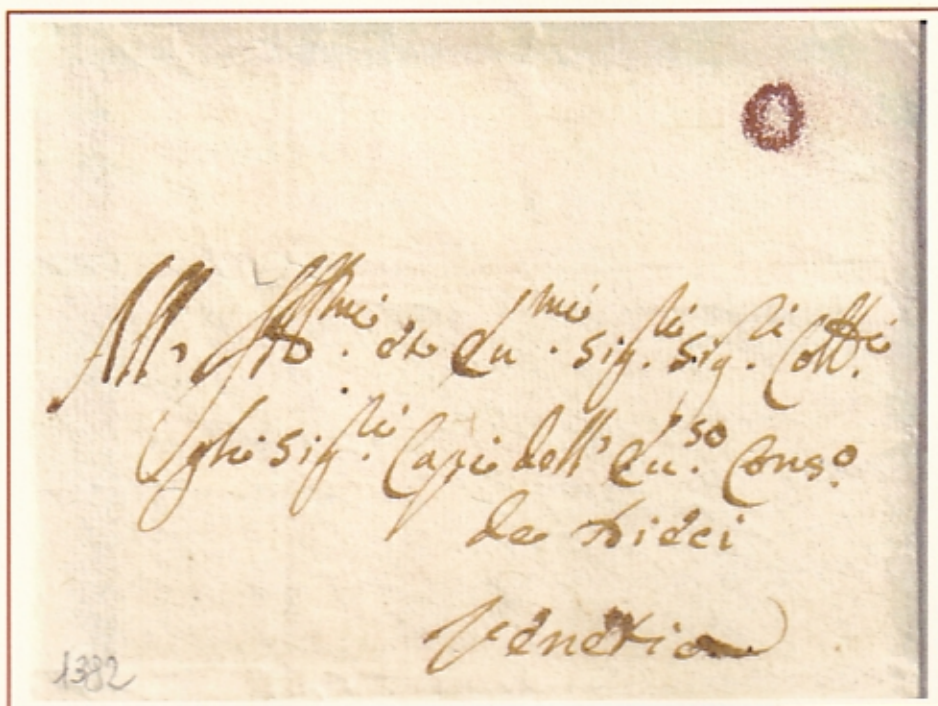 All' Ill.mi et Ecc.mi Sig.ri Sig.ri Coll.mi
Gli Sig.ri Capi dell' Ecc.so Cons.o
de Dieci
Venetia
1382